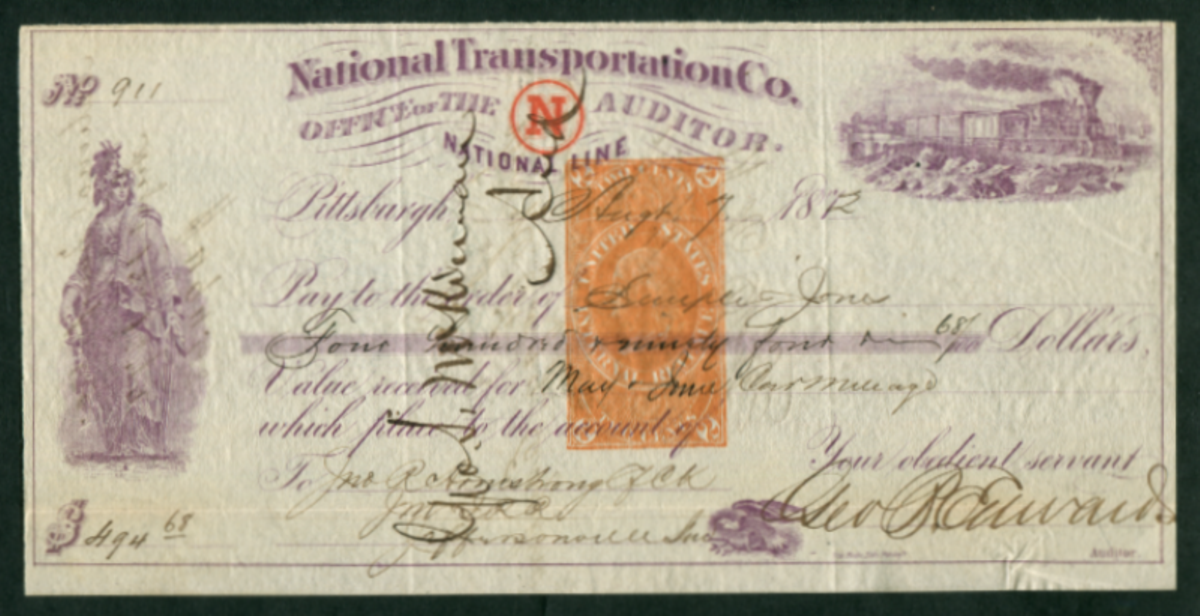 No 911
National Transportation Co.
OFFICE OF THE AUDITOR.
N
NATIONAL LINE
Pittsburgh Augt 7 1872
Pay to the order of Jones
Four Hundred & ninety four 68/100 Dollars,
Value received for May & June Car Mileage
which place to the account of
Your obedient servant
To Jno R Armstrong
Jeffersonville Ind
$ 494 68
Geo B. Edwards
Auditor.
UNITED STATES
INTERNAL REVENUE